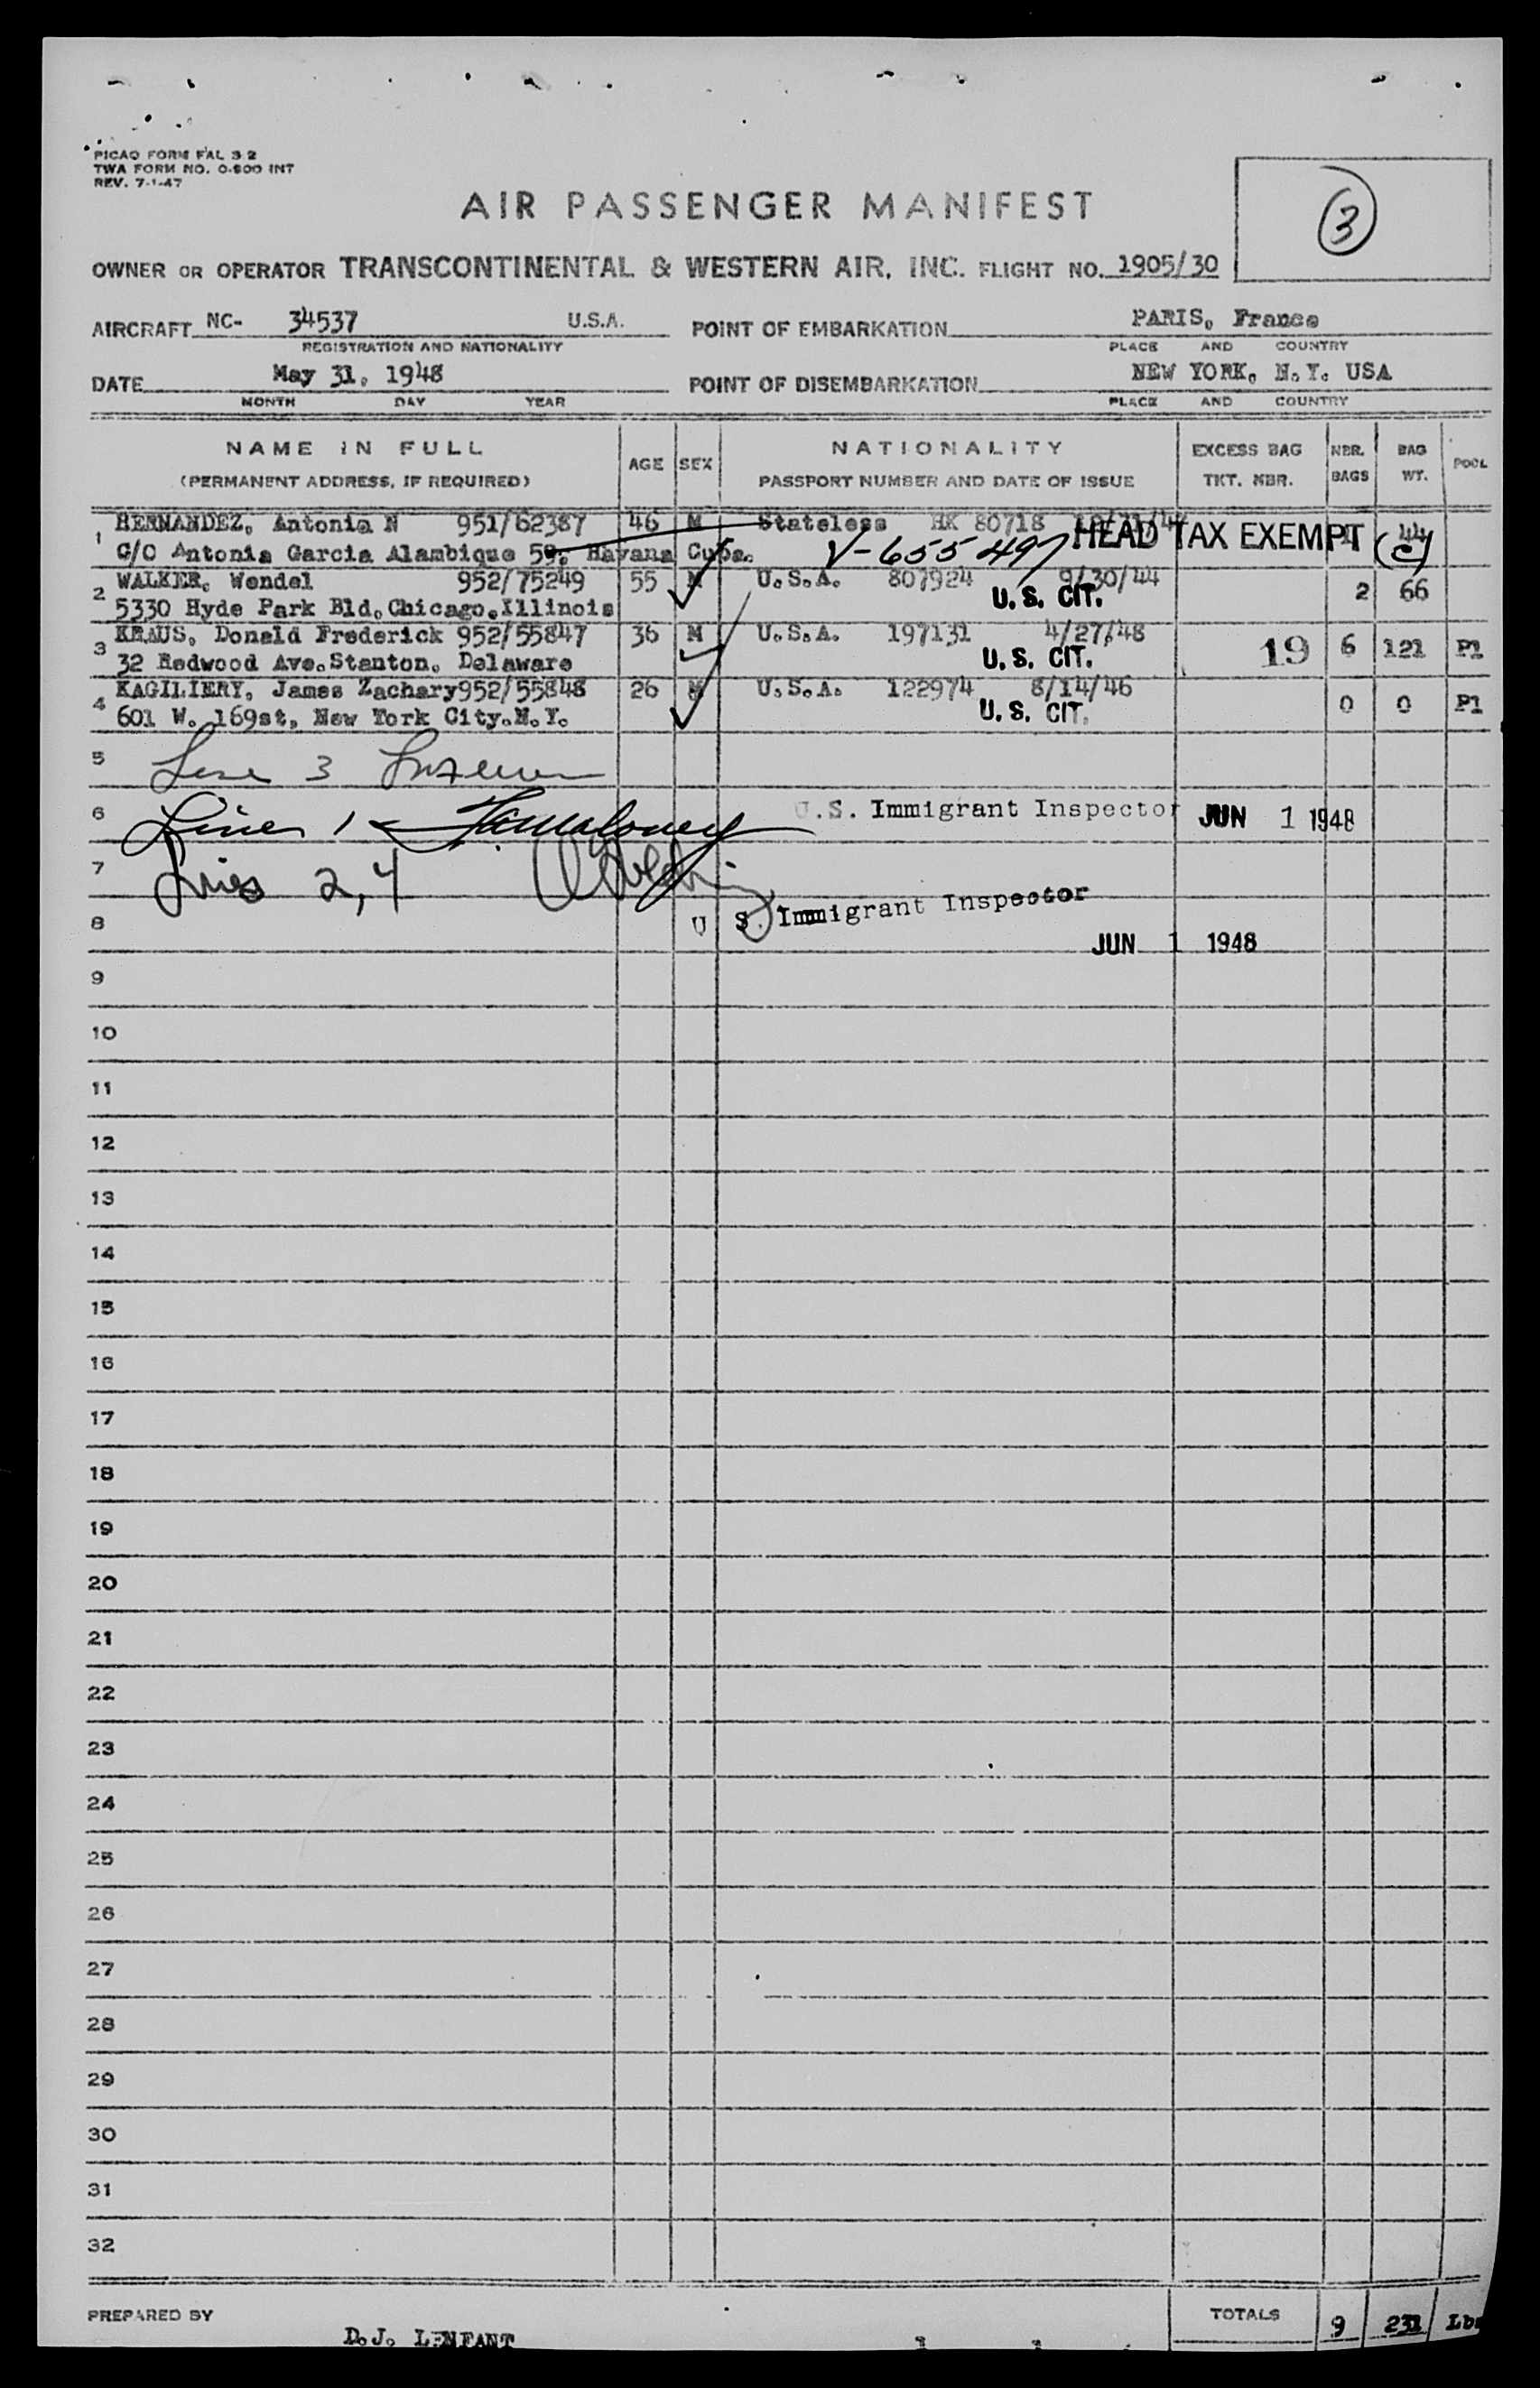 PICAO FORM FAL 3 2
TWA FORM NO. O-800 INT
REV. 7-1-47
AIR PASSENGER MANIFEST
3
OWNER OR OPERATOR TRANSCONTINENTAL & WESTERN AIR, INC. FLIGHT NO. 1905/30
AIRCRAFT NC- 34537 U.S.A. POINT OF EMBARKATION PARIS, France
REGISTRATION AND NATIONALITY PLACE AND COUNTRY
DATE May 31, 1948 POINT OF DISEMBARKATION NEW YORK, N.Y. USA
MONTH DAY YEAR PLACE AND COUNTRY
NAME IN FULL AGE SEX NATIONALITY EXCESS BAG NBR. BAG POOL
(PERMANENT ADDRESS, IF REQUIRED) PASSPORT NUMBER AND DATE OF ISSUE TKT. NBR. BAGS WT.
1 HERNANDEZ, Antonia N 951/62387 46 M Stateless HK 80718 44
C/O Antonia Garcia Alambique 59, Havana Cuba. V-655497 HEAD TAX EXEMPT (c)
2 WALKER, Wendel 952/75249 55 M U.S.A. 807924 9/30/44 2 66
5330 Hyde Park Bld.Chicago.Illinois U. S. CIT.
3 KRAUS, Donald Frederick 952/55847 36 M U.S.A. 197131 4/27/48 19 6 121 P1
32 Redwood Ave.Stanton, Delaware U. S. CIT.
4 KAGILIERY, James Zachary952/55848 26 M U.S.A. 122974 8/14/46 0 0 P1
601 W. 169st, New York City.N.Y. U. S. CIT.
5 Line 3
6 Line 1 U.S. Immigrant Inspector JUN 1 1948
7 Lines 2, 4
8 U S. Immigrant Inspector
JUN 1 1948
9
10
11
12
13
14
15
16
17
18
19
20
21
22
23
24
25
26
27
28
29
30
31
32
PREPARED BY D.J. LENFANT TOTALS 9 231 Lbs